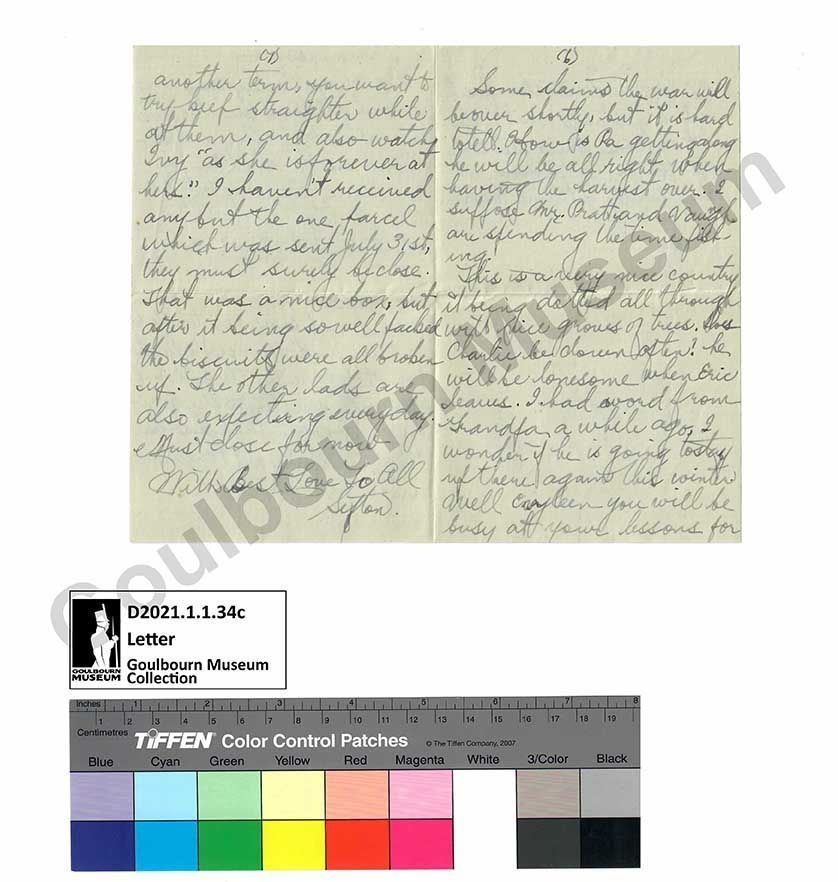 (7)
another term, you want to
try keep straighter while
at them, and also watch
Ivy "as she is forever at
hers." I haven't received
any but the one parcel
which was sent July 31st,
they must surely be close.
That was a nice box, but
after it being so well packed
the biscuits were all broken
up. The other lads are
also expecting everyday.
Must close for now
With Best Love To All
Sefton.
(6)
Some claims the war will
be over shortly, but it is hard
to tell. How is Pa getting along
he will be all right when
having the harvest over. I
suppose Mr. Pratt and Vaugh
are spending the time fish-
ing.
This is a very nice country
it being dotted all through
with nice groves of trees. Does
Charlie be down often? he
will be lonesome when Eric
leaves. I had word from
Grandpa a while ago, I
wonder if he is going to stay
up there again this winter.
Well you will be
busy at your lessons for
Goulbourn Museum
D2021.1.1.34c
Letter
Goulbourn Museum
Collection
GOULBOURN
MUSEUM
Inches 1 2 3 4 5 6 7 8
1 2 3 4 5 6 7 8 9 10 11 12 13 14 15 16 17 18 19
Centimetres
TIFFEN Color Control Patches © The Tiffen Company, 2007
Blue Cyan Green Yellow Red Magenta White 3/Color Black